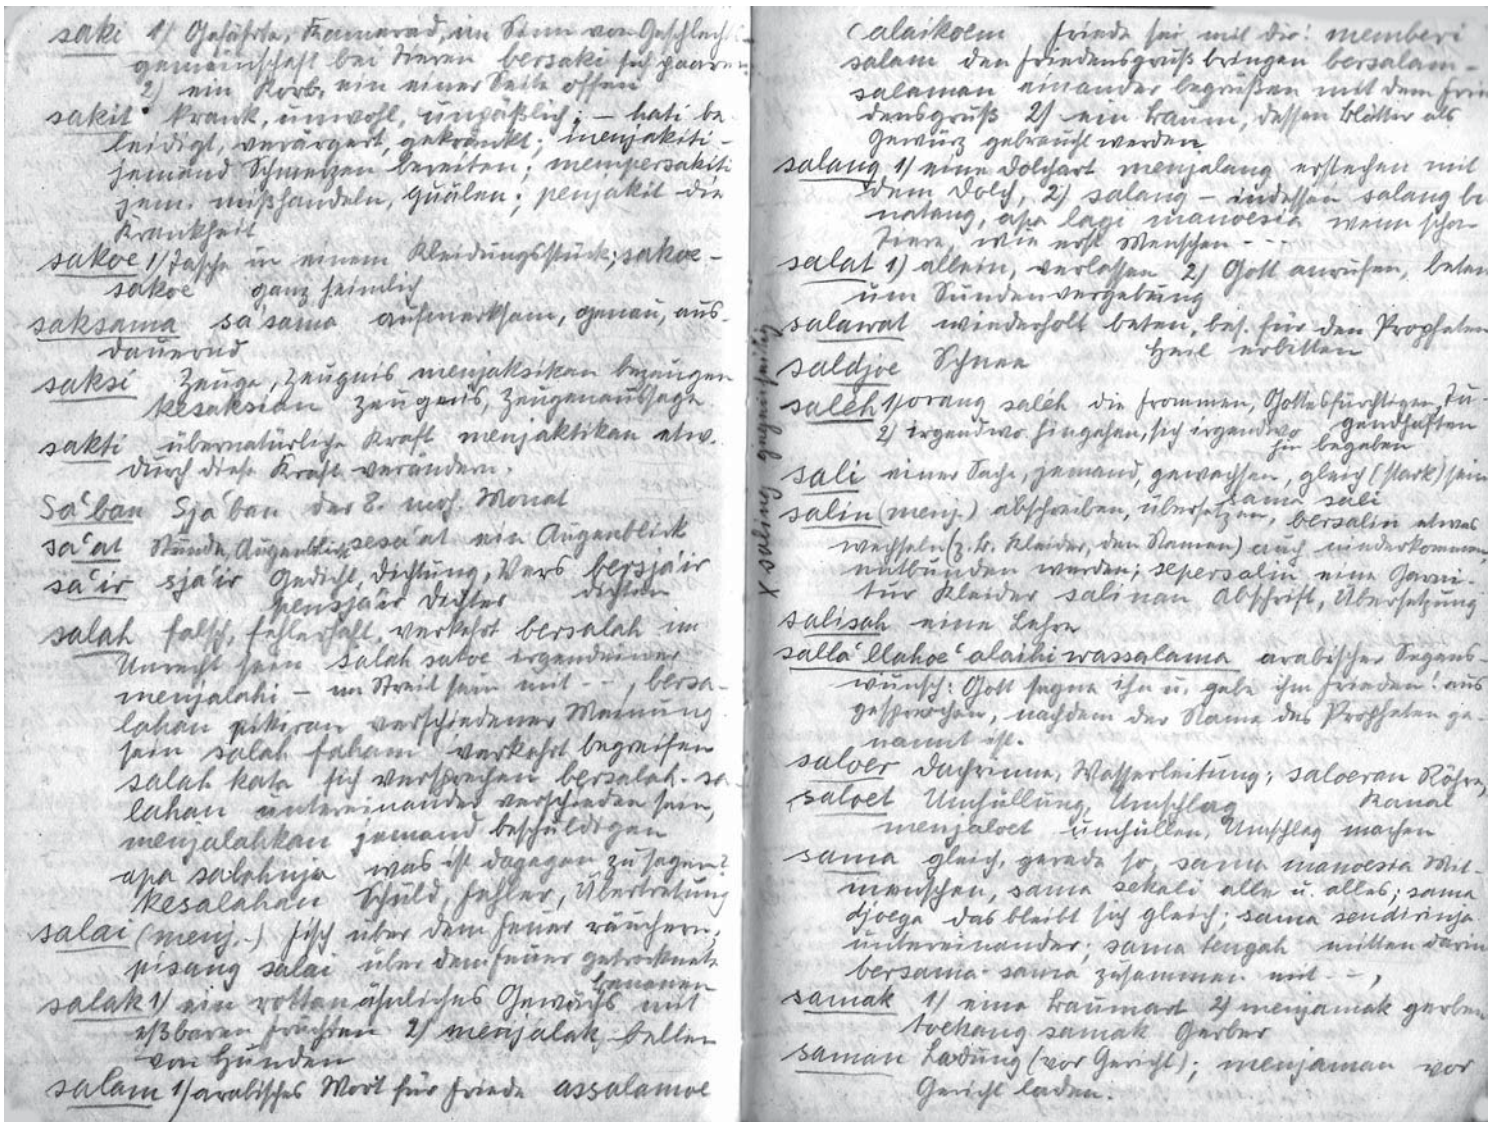 saki 1) Gefährte, Kamerad, im Sinn von Geschlecht
gemeinschaft bei Tieren bersaki sich paaren
2) ein Korb, ein einer Seite offen
sakit krank, unwohl, unpäßlich; – hati be
leidigt, verärgert, gekränkt; menjakiti –
jemand Schmerzen bereiten; mempersakiti
jem. mißhandeln, quälen; penjakit die
Krankheit
sakoe 1) Tasche in einem Kleidungsstück; sakoe –
sakoe ganz heimlich
saksama sa'sama aufmerksam, genau, aus-
dauernd
saksi Zeuge, Zeugnis menjaksikan bezeugen
kesaksian Zeugnis, Zeugenaussage
sakti übernatürliche Kraft menjaktikan etw.
durch diese Kraft verändern.
Sa'ban Sja'ban der 8. moh. Monat
sa'at Stunde, Augenblick sesa'at ein Augenblick
sa'ir sja'ir Gedicht, Dichtung, Vers bersja'ir
pensja'ir Dichter dichten
salah falsch, fehlerhaft, verkehrt bersalah im
Unrecht sein salah satoe irgendeiner
menjalahi – im Streit sein mit - -, bersa-
lahan pikiran verschiedener Meinung
sein salah faham verkehrt begreifen
salah kata sich versprechen bersalah-sa-
lahan untereinander verschieden sein,
menjalahkan jemand beschuldigen
apa salahnja was ist dagegen zu sagen?
kesalahan Schuld, Fehler, Übertretung
salai (menj.-) Fisch über dem Feuer räuchern;
pisang salai über dem Feuer getrocknete
Bananen
salak 1) ein rottanähnliches Gewächs mit
eßbaren Früchten 2) menjalak bellen
von Hunden
salam 1) arabisches Wort für Friede assalamoe
(alaikoem Friede sei mit dir! memberi
salam den Friedensgruß bringen bersalam-
salaman einander begrüßen mit dem Frie
densgruß 2) ein Baum, dessen Blätter als
Gewürz gebraucht werden
salang 1) eine Dolchart menjalang erstechen mit
dem Dolch, 2) salang – indessen salang bi
natang, apa lagi manoesia wenn schon
Tiere, wie erst Menschen - - -
salat 1) allein, verlassen 2) Gott anrufen, beten
um Sündenvergebung
salawat wiederholt beten, bes. für den Propheten
Heil erbitten
saldjoe Schnee
saleh 1) orang saleh die Frommen, Gottesfürchtigen, Tu-
gendhaften
2) irgendwo hingehen, sich irgendwo
hin begeben
sali einer Sache, jemand, gewachsen, gleich (stark) sein
sama sali
salin (menj.) abschreiben, übersetzen, bersalin etwas
wechseln (z.B. Kleider, den Namen) auch niederkommen,
entbunden werden; sepersalin eine Garni-
tur Kleider salinan Abschrift, Übersetzung
x saling gegenseitig
salisah eine Lehre
salla'llahoe'alaihi wassalama arabischer Segens-
wunsch: Gott segne ihn u. gebe ihm Frieden! aus
gesprochen, nachdem der Name des Propheten ge-
nannt ist.
saloer Dachrinne, Wasserleitung; saloeran Röhre,
Kanal
saloet Umhüllung, Umschlag
menjaloet umhüllen, Umschlag machen
sama gleich, gerade so, sama manoesia Mit-
menschen, sama sekali alle u. alles; sama
djoega das bleibt sich gleich; sama sendirinja
untereinander; sama tengah mitten darin
bersama-sama zusammen mit - -,
samak 1) eine Baumart 2) menjamak gerben
toekang samak Gerber
saman Ladung (vor Gericht); menjaman vor
Gericht laden.